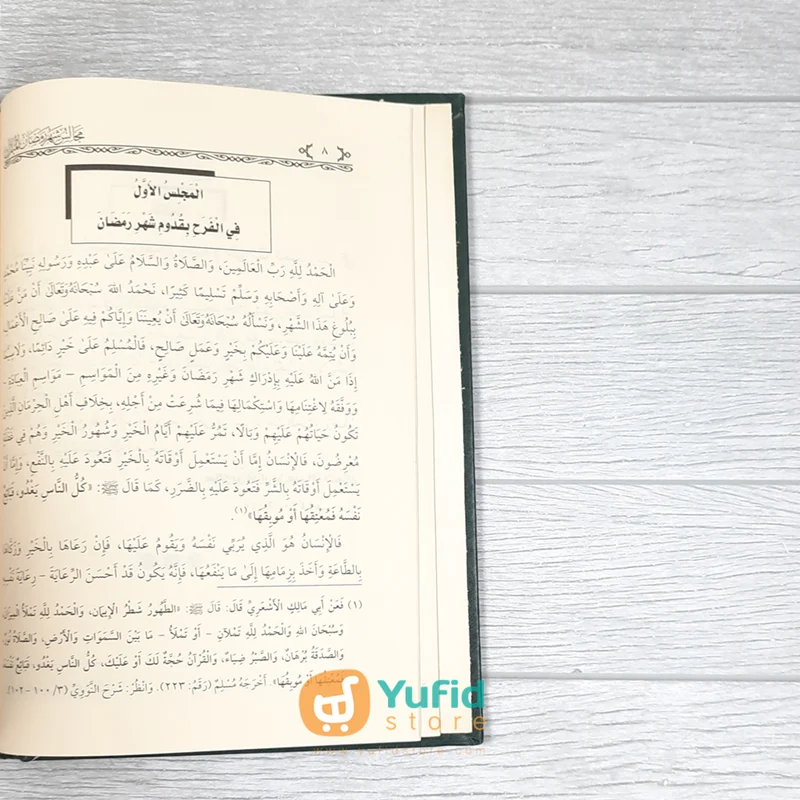 مجالس شهر رمضان
٨
الْمَجْلِسُ الأَوَّلُ
فِي الْفَرَحِ بِقُدُومِ شَهْرِ رَمَضَانَ
الْحَمْدُ لِلَّهِ رَبِّ الْعَالَمِينَ، وَالصَّلَاةُ وَالسَّلَامُ عَلَىٰ عَبْدِهِ وَرَسُولِهِ نَبِيِّنَا
وَعَلَىٰ آلِهِ وَأَصْحَابِهِ وَسَلَّمَ تَسْلِيمًا كَثِيرًا، نَحْمَدُ اللهَ سُبْحَانَهُ وَتَعَالَىٰ أَنْ مَنَّ
بِبُلُوغِ هَذَا الشَّهْرِ، وَنَسْأَلُهُ سُبْحَانَهُ وَتَعَالَىٰ أَنْ يُعِينَنَا وَإِيَّاكُمْ فِيهِ عَلَىٰ صَالِحِ
وَأَنْ يُتِمَّهُ عَلَيْنَا وَعَلَيْكُمْ بِخَيْرٍ وَعَمَلٍ صَالِحٍ، فَالْمُسْلِمُ عَلَىٰ خَيْرٍ دَائِمًا،
إِذَا مَنَّ اللهُ عَلَيْهِ بِإِدْرَاكِ شَهْرِ رَمَضَانَ وَغَيْرِهِ مِنَ الْمَوَاسِمِ – مَوَاسِمِ
وَوَفَّقَهُ لِاغْتِنَامِهَا وَاسْتِكْمَالِهَا فِيمَا شُرِعَتْ مِنْ أَجْلِهِ، بِخِلَافِ أَهْلِ الْحِرْمَانِ
تَكُونُ حَيَاتُهُمْ عَلَيْهِمْ وَبَالًا، تَمُرُّ عَلَيْهِمْ أَيَّامُ الْخَيْرِ وَشُهُورُ الْخَيْرِ وَهُمْ فِي
مُعْرِضُونَ، فَالْإِنْسَانُ إِمَّا أَنْ يَسْتَعْمِلَ أَوْقَاتَهُ بِالْخَيْرِ فَتَعُودَ عَلَيْهِ بِالنَّفْعِ، وَإِمَّا أَنْ
يَسْتَعْمِلَ أَوْقَاتَهُ بِالشَّرِّ فَتَعُودَ عَلَيْهِ بِالضَّرَرِ، كَمَا قَالَ ﷺ: «كُلُّ النَّاسِ يَغْدُو،
نَفْسَهُ فَمُعْتِقُهَا أَوْ مُوبِقُهَا»(١).
فَالْإِنْسَانُ هُوَ الَّذِي يُرَبِّي نَفْسَهُ وَيَقُومُ عَلَيْهَا، فَإِنْ رَعَاهَا بِالْخَيْرِ
بِالطَّاعَةِ وَأَخَذَ بِزِمَامِهَا إِلَىٰ مَا يَنْفَعُهَا، فَإِنَّهُ يَكُونُ قَدْ أَحْسَنَ الرِّعَايَةَ – رِعَايَةَ
(١) فَعَنْ أَبِي مَالِكٍ الْأَشْعَرِيِّ قَالَ: قَالَ ﷺ: «الطُّهُورُ شَطْرُ الْإِيمَانِ، وَالْحَمْدُ لِلَّهِ تَمْلَأُ
وَسُبْحَانَ اللهِ وَالْحَمْدُ لِلَّهِ تَمْلَآنِ – أَوْ تَمْلَأُ – مَا بَيْنَ السَّمَوَاتِ وَالْأَرْضِ، وَالصَّلَاةُ
وَالصَّدَقَةُ بُرْهَانٌ، وَالصَّبْرُ ضِيَاءٌ، وَالْقُرْآنُ حُجَّةٌ لَكَ أَوْ عَلَيْكَ، كُلُّ النَّاسِ يَغْدُو، فَبَائِعٌ
فَمُعْتِقُهَا أَوْ مُوبِقُهَا». أَخْرَجَهُ مُسْلِمٌ (رَقَمْ: ٢٢٣). وَانْظُرْ: شَرْحَ النَّوَوِيِّ (٣/ ١٠٠ – ١٠٢).
Yufid
store